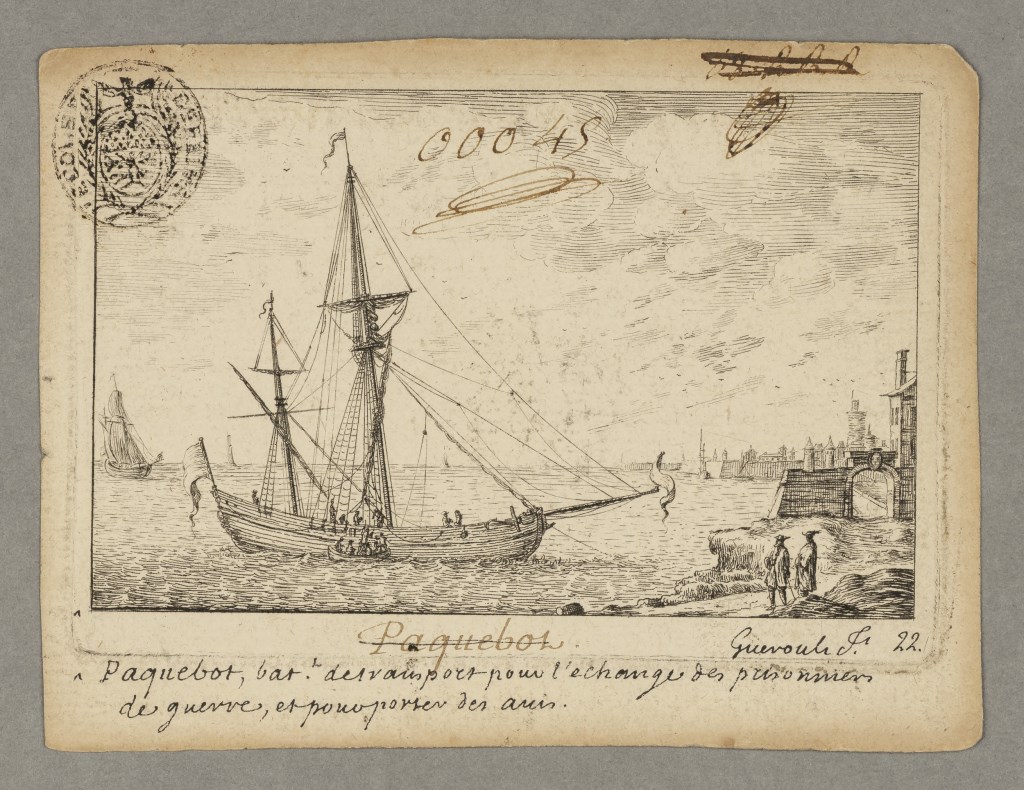 00045
Paquebot.
Gueroult F.t 22.
Paquebot, bat.t de transport pour l'echange des prisonniers
de guerre, et pour porter des avis.